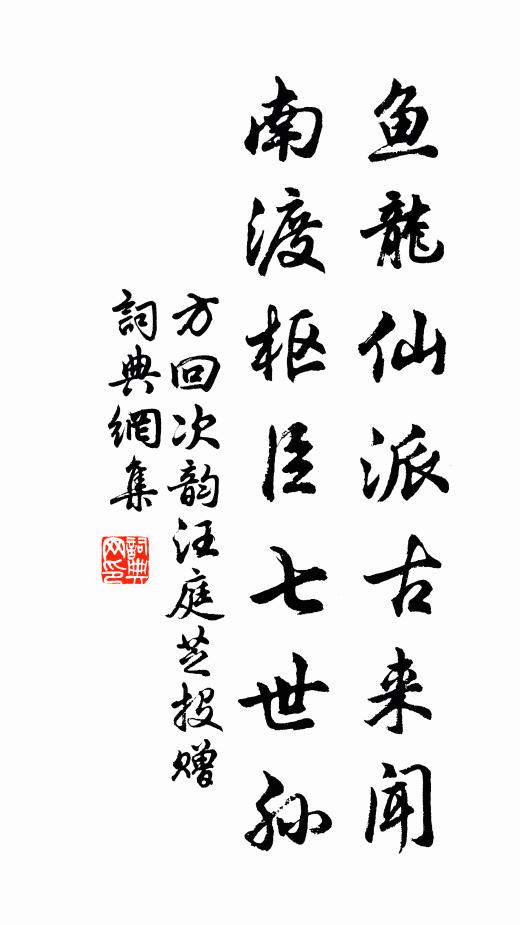 鱼龍仙派古来闻
南渡枢臣七世孙
方回次韵汪庭芝投赠
詞典網集
詞典网印